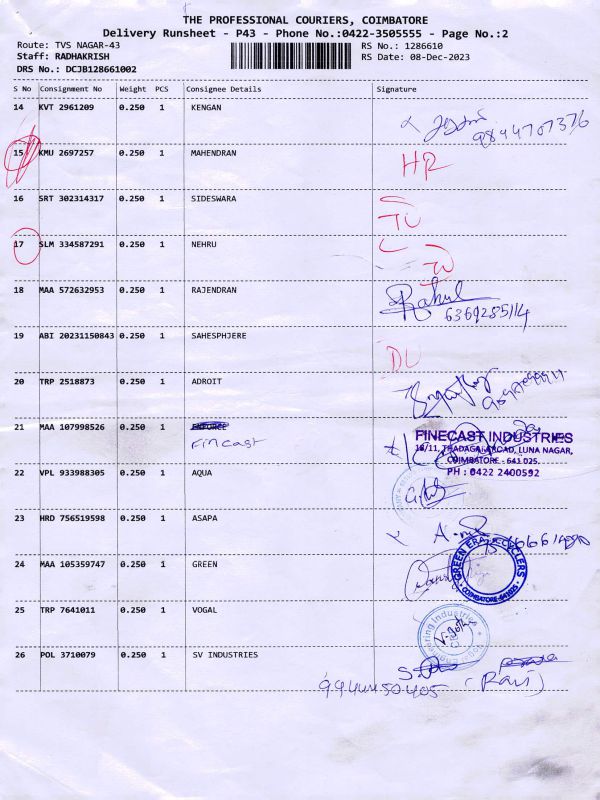 THE PROFESSIONAL COURIERS, COIMBATORE
Delivery Runsheet - P43 - Phone No.:0422-3505555 - Page No.:2
Route: TVS NAGAR-43
Staff: RADHAKRISH
DRS No.: DCJB128661002
RS No.: 1286610
RS Date: 08-Dec-2023
S No Consignment No Weight PCS Consignee Details Signature
14 KVT 2961209 0.250 1 KENGAN
9844707376
15 KMU 2697257 0.250 1 MAHENDRAN
16 SRT 302314317 0.250 1 SIDESWARA
17 SLM 334587291 0.250 1 NEHRU
18 MAA 572632953 0.250 1 RAJENDRAN Rahul
6369285114
19 ABI 20231150843 0.250 1 SAHESPHJERE
DL
20 TRP 2518873 0.250 1 ADROIT
21 MAA 107998526 0.250 1
Fincast
FINECAST INDUSTRIES
THADAGAM ROAD, LUNA NAGAR,
COIMBATORE - 641 025.
PH : 0422 2400592
22 VPL 933988305 0.250 1 AQUA
23 HRD 756519598 0.250 1 ASAPA
24 MAA 105359747 0.250 1 GREEN
GREEN ERA RECYCLERS
COIMBATORE-641025
25 TRP 7641011 0.250 1 VOGAL
Engineering Industries
26 POL 3710079 0.250 1 SV INDUSTRIES
9944450405 (Ravi)